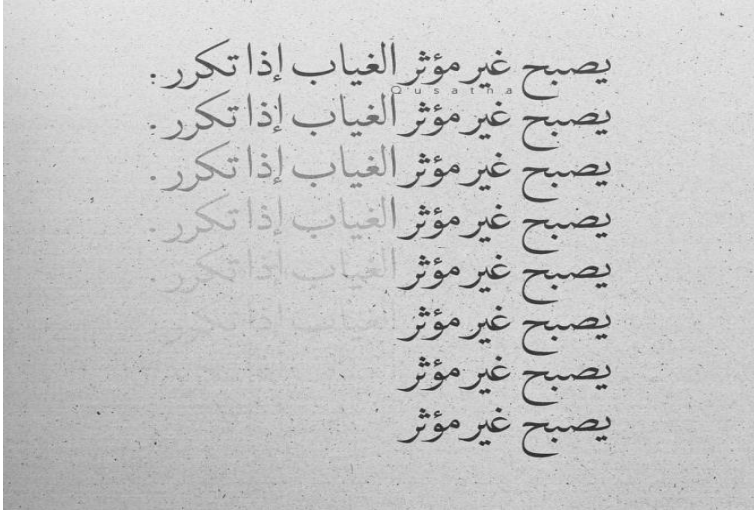 يصبح غير مؤثر الغياب إذا تكرر :
Qusatha
يصبح غير مؤثر الغياب إذا تكرر :
يصبح غير مؤثر الغياب إذا تكرر .
يصبح غير مؤثر الغياب إذا تكرر .
يصبح غير مؤثر الغياب إذا تكرر .
يصبح غير مؤثر الغياب إذا تكرر
يصبح غير مؤثر
يصبح غير مؤثر